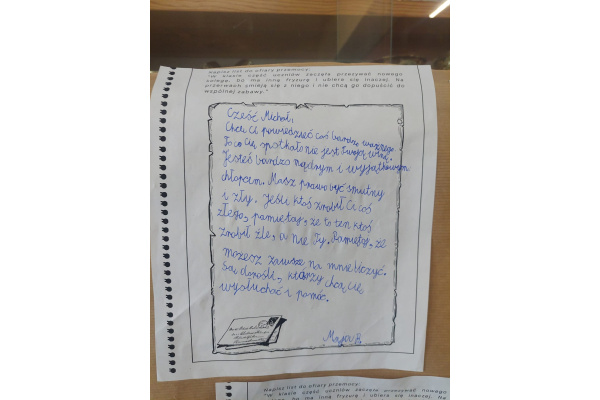 Napisz list do ofiary przemocy:
"W klasie część uczniów zaczęła przezywać nowego
kolegę, bo ma inną fryzurę i ubiera się inaczej. Na
przerwach śmieją się z niego i nie chcą go dopuścić do
wspólnej zabawy."
Cześć Michał,
Chcę Ci powiedzieć coś bardzo ważnego
To co Cię spotkało nie jest Twoją winą.
Jesteś bardzo mądrym i wyjątkowym
chłopcem. Masz prawo być smutny
i zły. Jeśli ktoś zrobił Ci coś
złego, pamiętaj, że to ten ktoś
zrobił źle, a nie Ty. Pamiętaj, że
możesz zawsze na mnie liczyć.
Są dorośli, którzy chcą Cię
wysłuchać i pomóc.
Maja B
Napisz list do ofiary przemocy:
"W klasie część uczniów zaczęła przezywać nowego
kolegę, bo ma inną fryzurę i ubiera się inaczej. Na